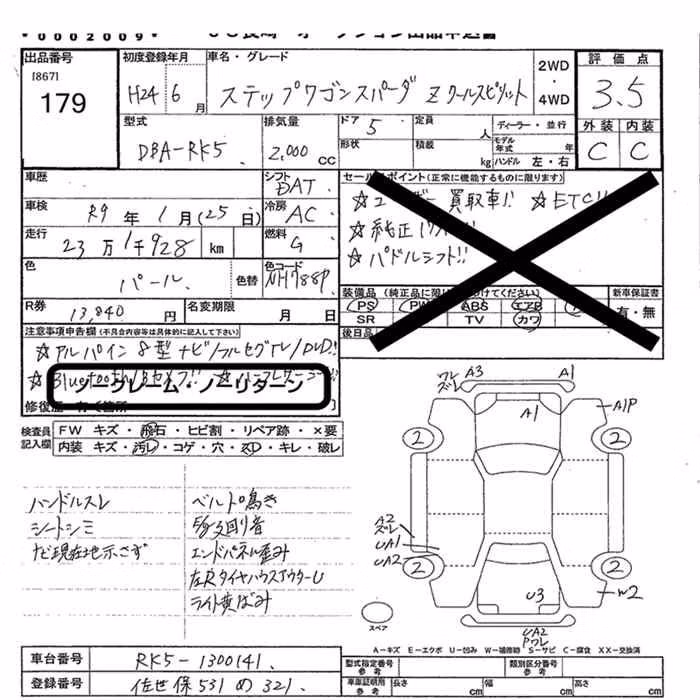 *0002009*
出品番号
[867]
179
初度登録年月
H24 6月
車名・グレード
ステップワゴンスパーダ Zクールスピリット
2WD
・
4WD
評価点
3.5
外装 内装
C C
型式
DBA-RK5
排気量
2,000 CC
ドア 5
形状
定員 人
積載 kg
ディーラー・並行
モデル年式 年
ハンドル 左・右
車歴
シフト DAT
車検 R9年1月(25日)
冷房 AC
走行 23万1千928 km
燃料 G
色 パール 色替
色コード NH788P
R券 13,840円
名変期限 月 日
セールスポイント(正常に機能するものに限ります)
☆ユーザー買取車!! ☆ETC!!
☆純正
☆パドルシフト!!
装備品(純正品に限り
けてください)
PS PW ABS エアB
SR TV カワ
後日品
新車保証書
有・無
注意事項申告欄(不具合内容等は具体的に記入して下さい)
☆アルパイン8型ナビ/フルセグTV/DVD!!
☆Bluetooth
ノークレーム・ノーリターン
修復歴
検査員記入欄
FW キズ・飛石・ヒビ割・リペア跡・×要
内装 キズ・汚レ・コゲ・穴・スレ・キレ・破レ
ハンドルスレ
シートシミ
ナビ現在地示さず
ベルト鳴き
E/g廻り音
エンドパネル歪み
左RタイヤハウスアウターU
ライト黄ばみ
ワレ
ズレ
A3
A1
A1
A1P
2
2
A2
ズレ
UA1
UA2
2
2
W2
U3
UA2
Pワレ
スペア
A-キズ E-エクボ U-凹み W-補修跡 S-サビ C-腐食 XX-交換済
車台番号 RK5-1300141
登録番号 佐世保531め321
型式指定番号
類別区分番号
車車証明用参考
長さ cm
幅 cm
高さ cm